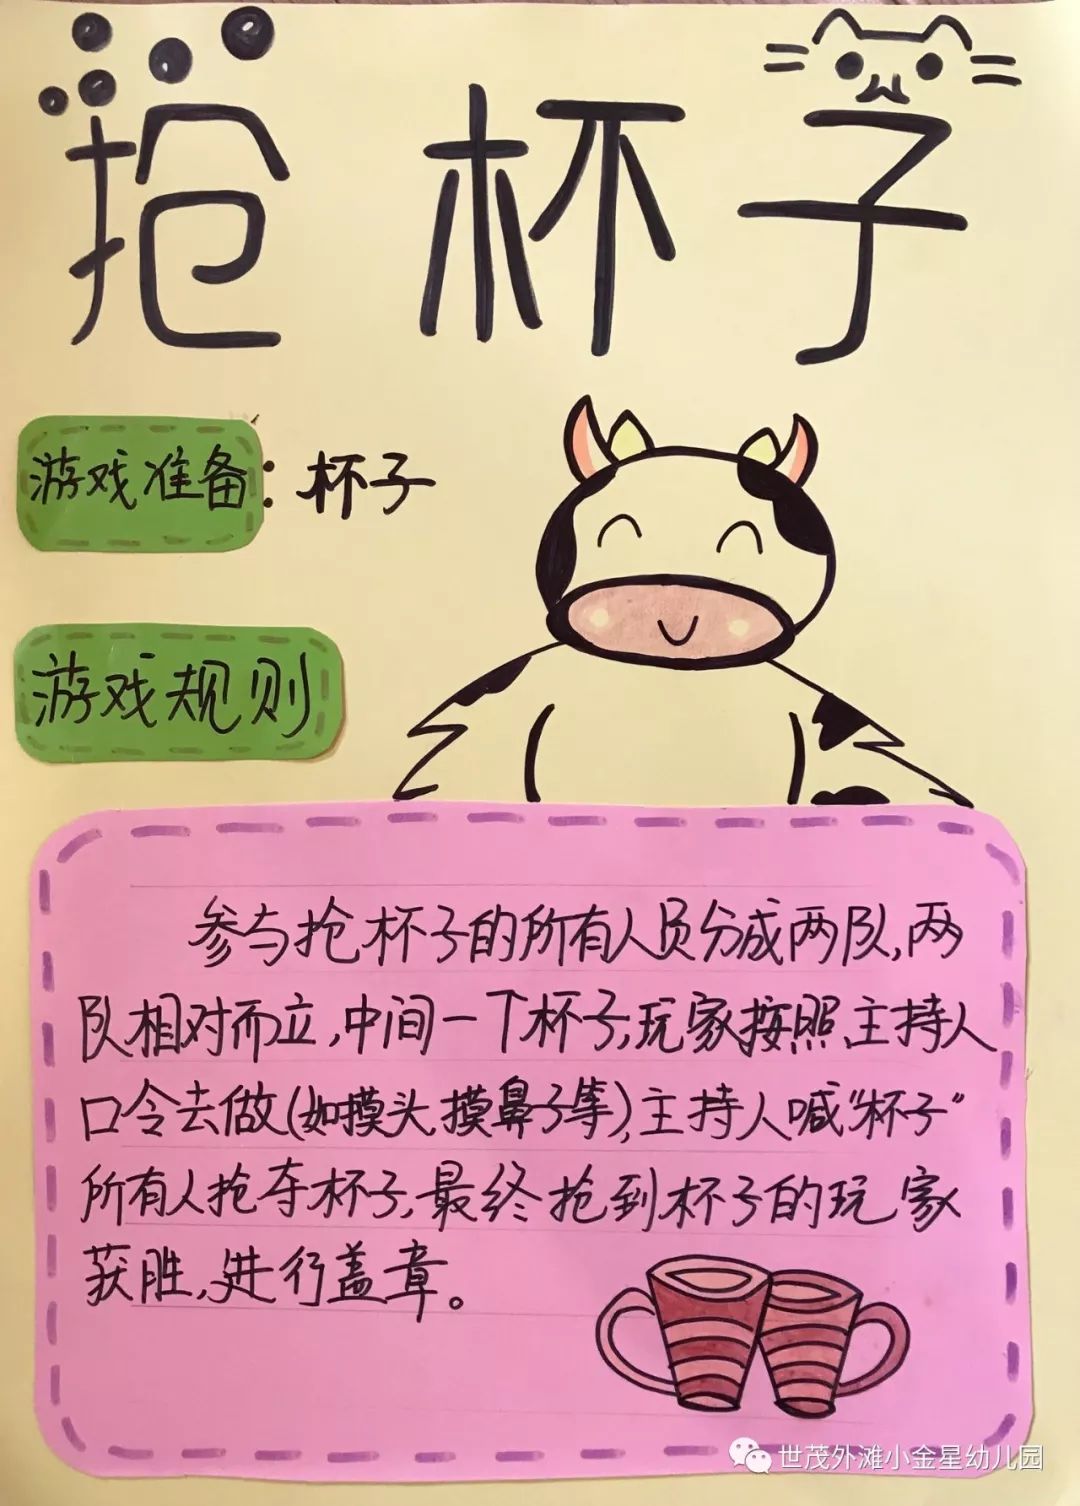 抢杯子
游戏准备：杯子
游戏规则
参与抢杯子的所有人员分成两队,两
队相对而立,中间一个杯子,玩家按照主持人
口令去做(如摸头、摸鼻子等),主持人喊“杯子”
所有人抢夺杯子,最终抢到杯子的玩家
获胜,进行盖章。
世茂外滩小金星幼儿园